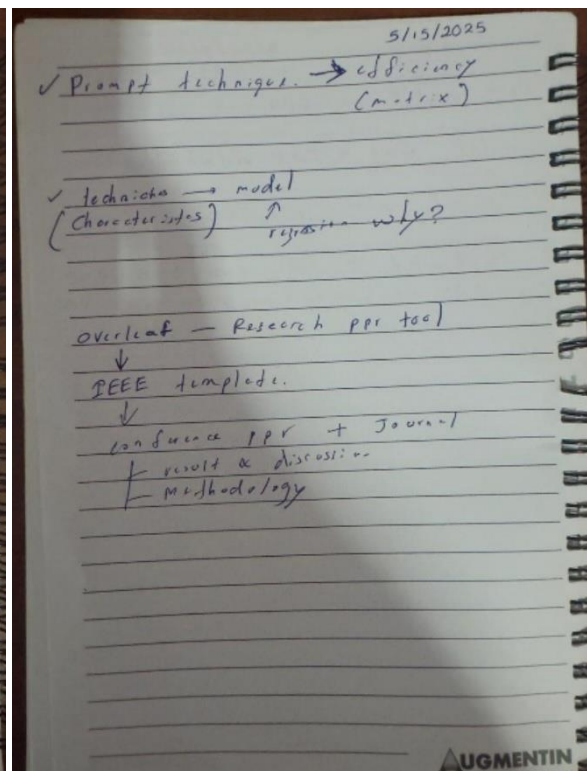 5/15/2025
✓ Prompt technique. → efficiency
(matrix)
✓ techniches → model
(Characteristes) ↑
regression why?
Overleaf — Research ppr tool
↓
IEEE template.
↓
conference ppr + Journal
result & discussion
Methodology
AUGMENTIN